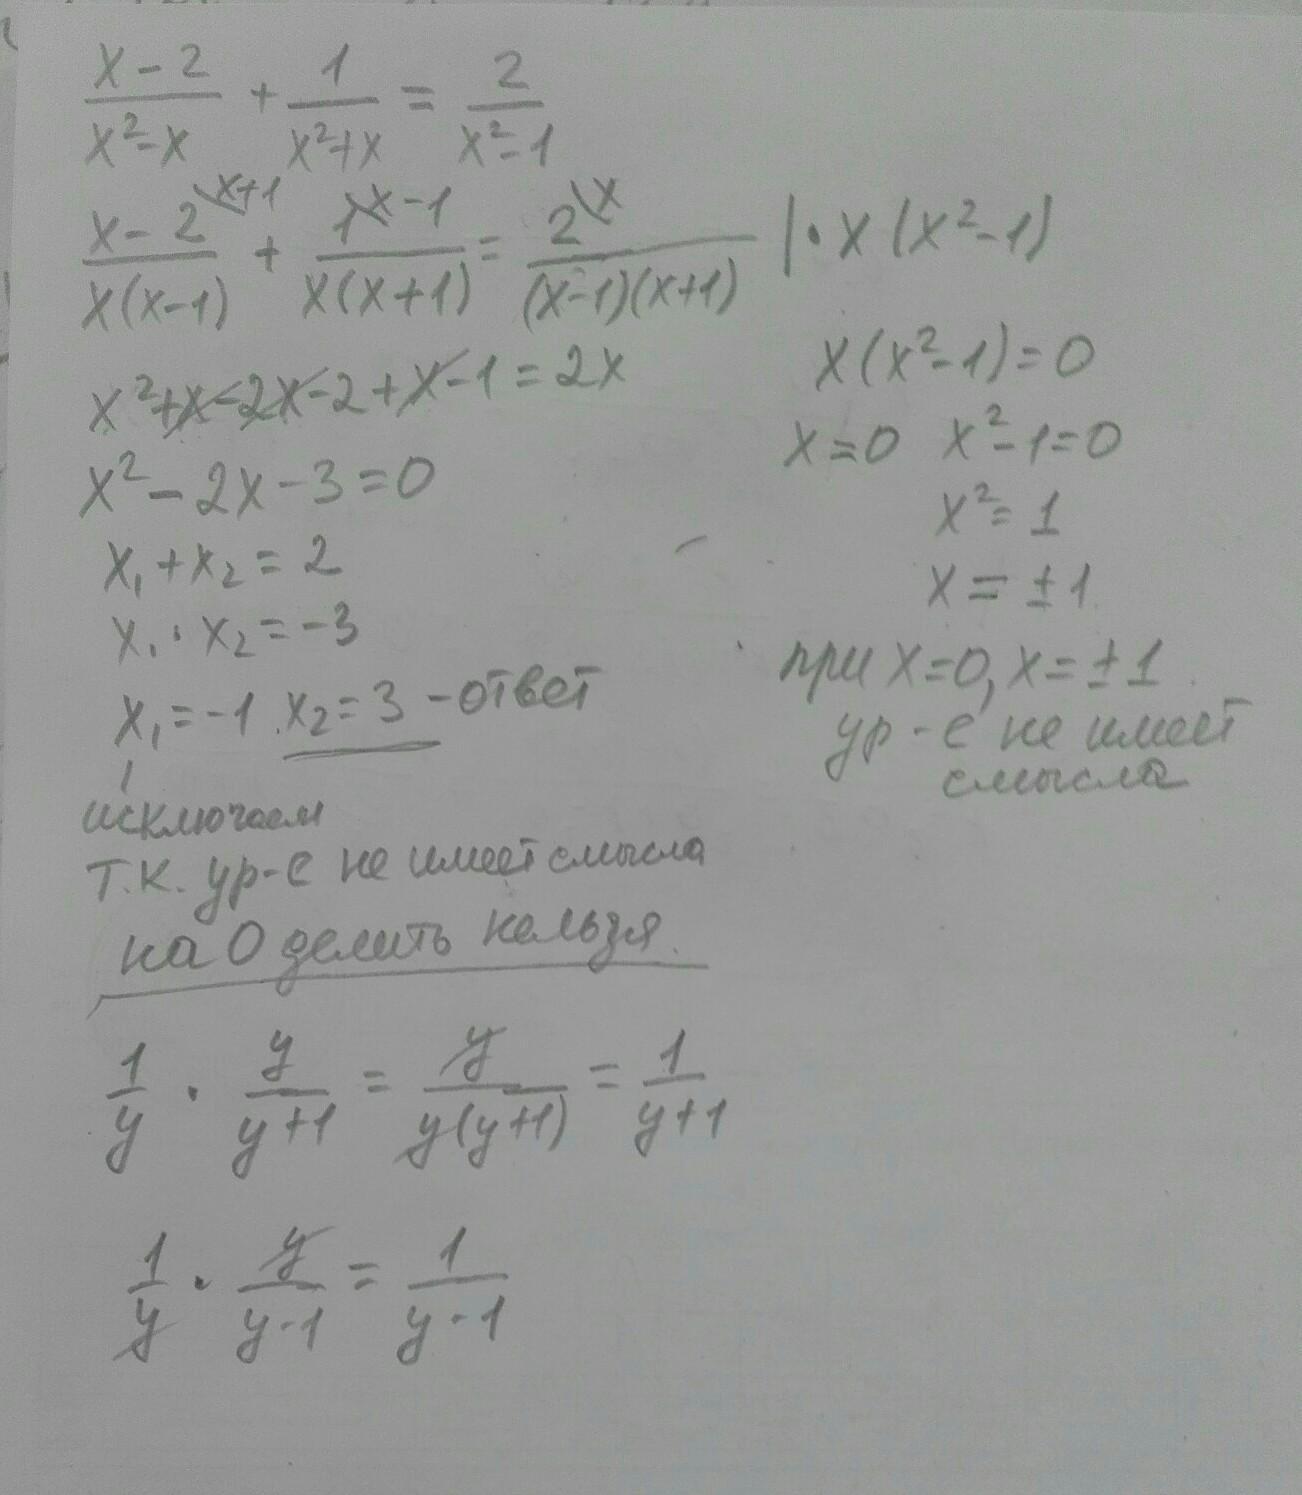 x-2/x²-x + 1/x²+x = 2/x²-1
x-2\x+1/x(x-1) + 1\x-1/x(x+1) = 2\x/(x-1)(x+1) |·x(x²-1)
x²+x-2x-2+x-1=2x
x²-2x-3=0
x₁+x₂=2
x₁·x₂=-3
x₁=-1 x₂=3 - ответ
исключаем
т.к. ур-е не имеет смысла
на 0 делить нельзя.
x(x²-1)=0
x=0 x²-1=0
x²=1
x=±1
при x=0, x=±1
ур-е не имеет
смысла
1/y · y/y+1 = y/y(y+1) = 1/y+1
1/y · y/y-1 = 1/y-1